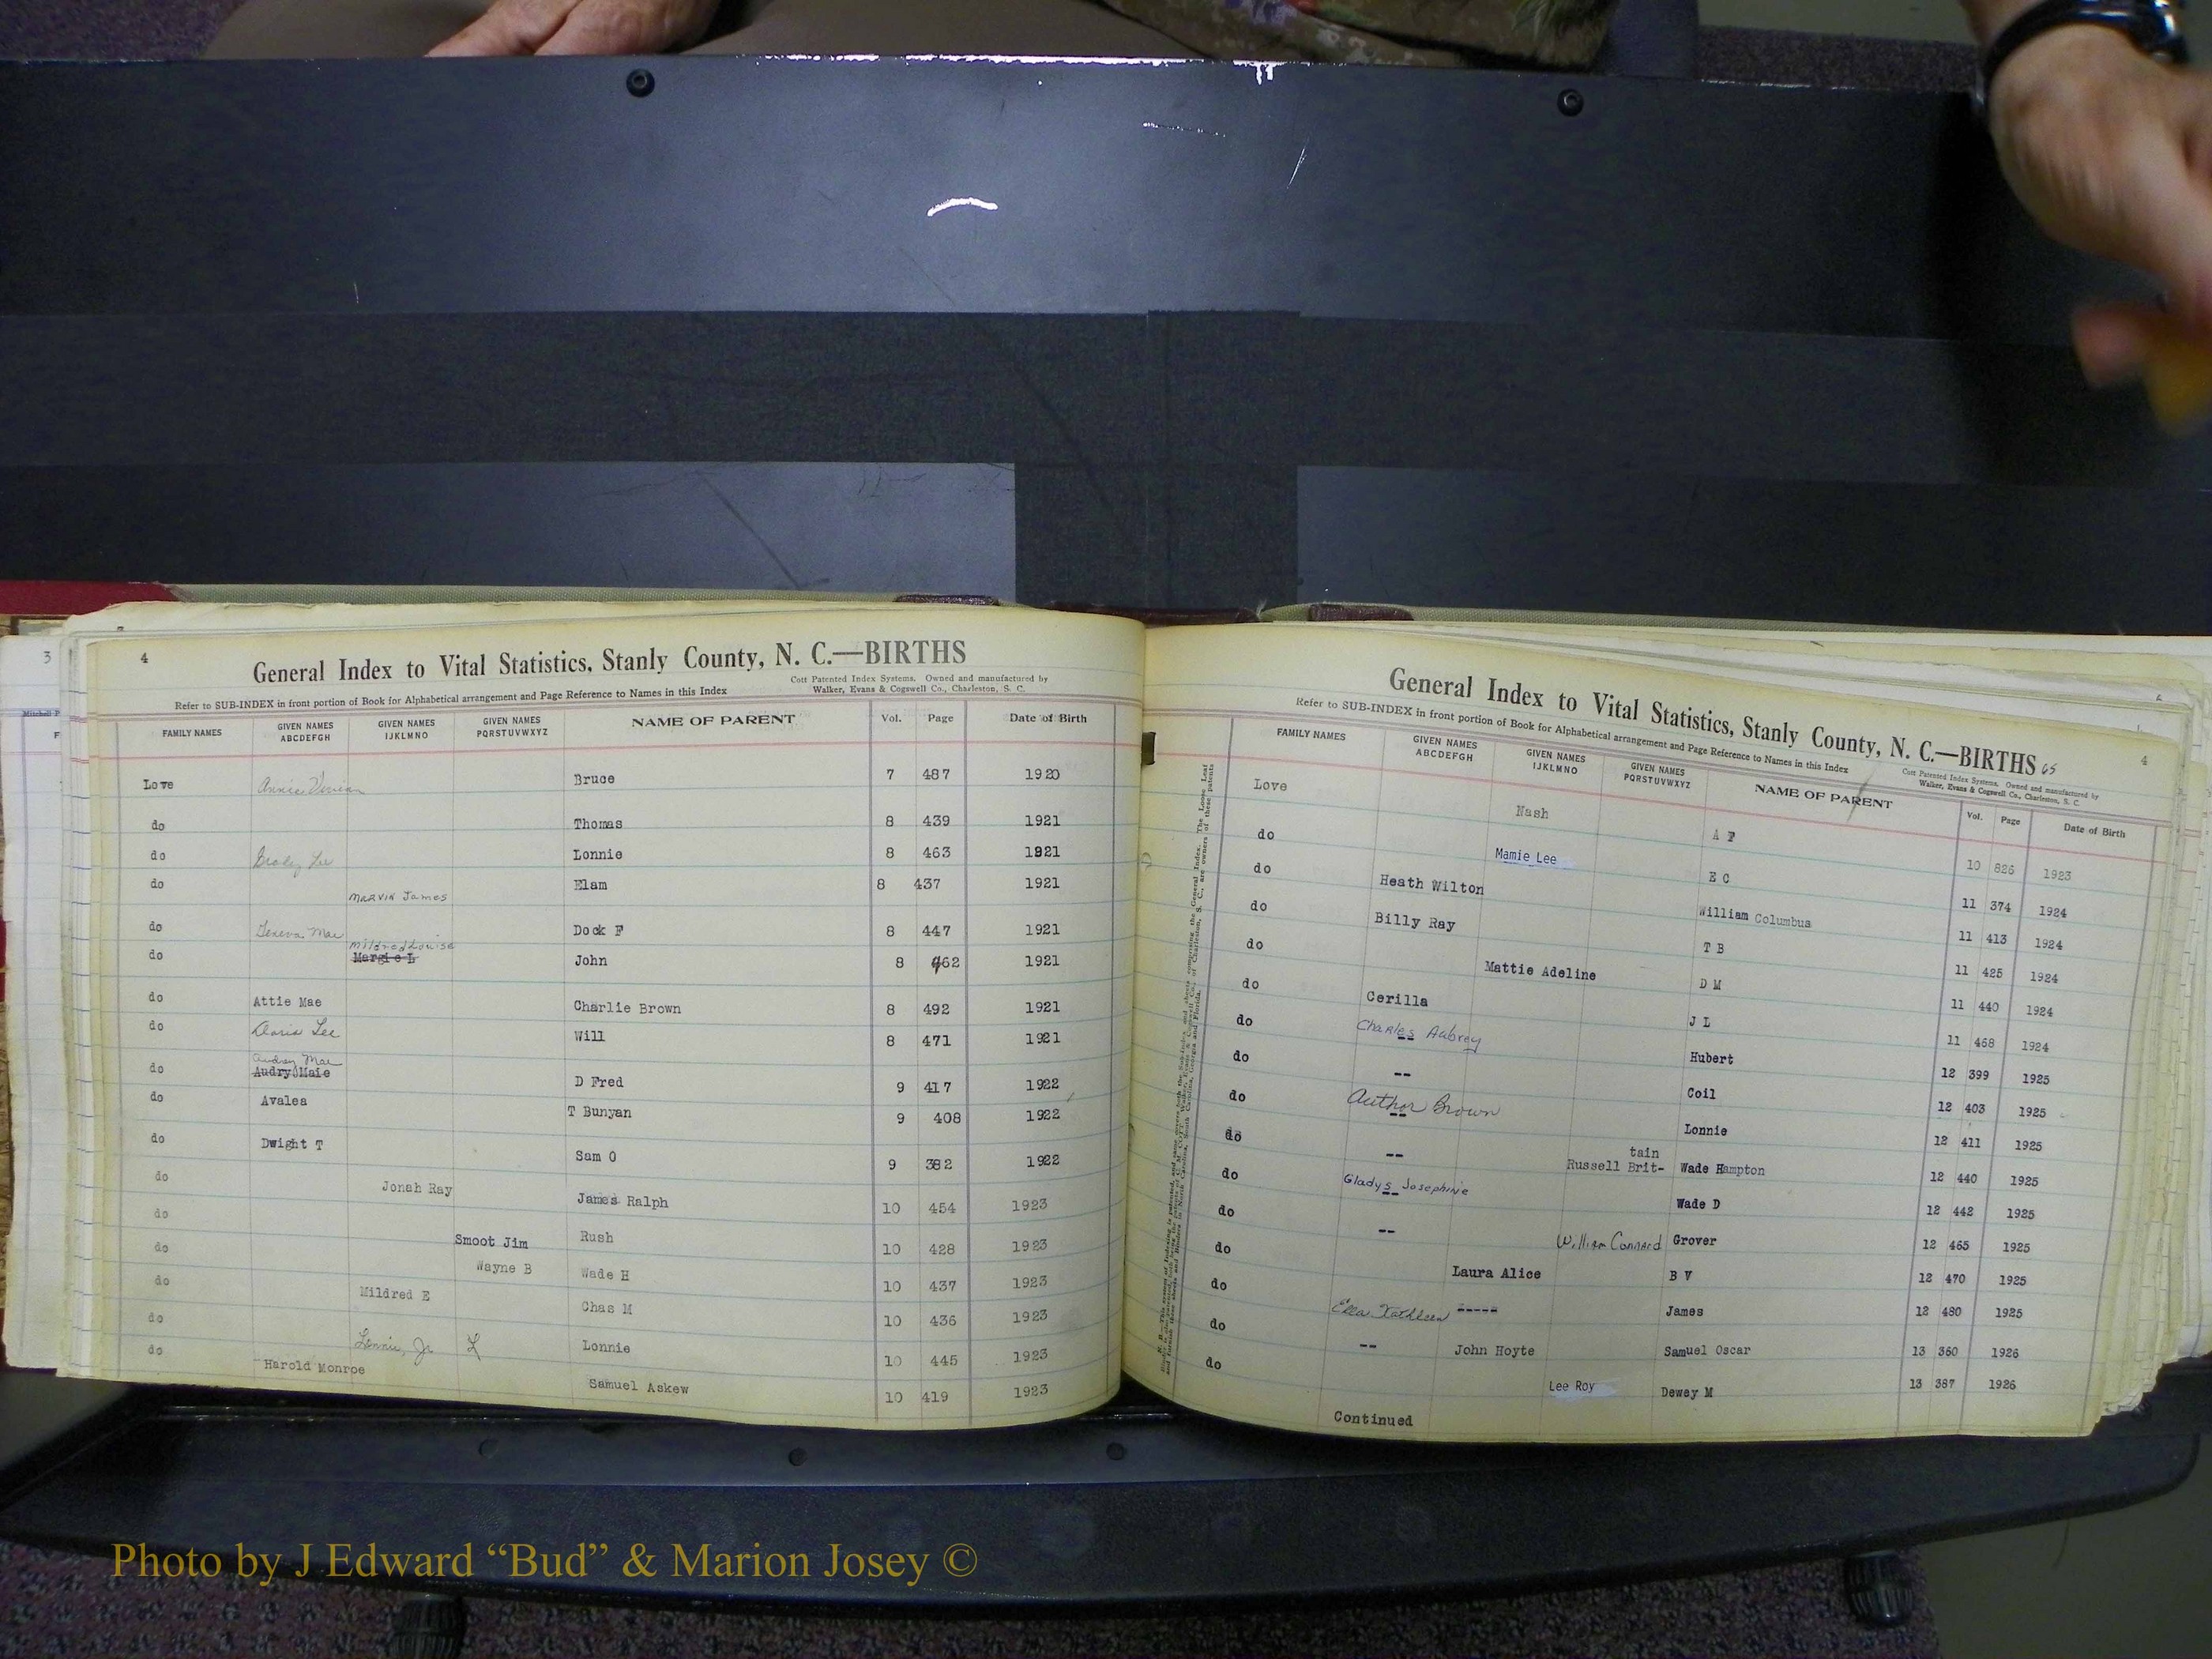 3
4
General Index to Vital Statistics, Stanly County, N. C.—BIRTHS
Cott Patented Index Systems. Owned and manufactured by
Refer to SUB-INDEX in front portion of Book for Alphabetical arrangement and Page Reference to Names in this Index
Walker, Evans & Cogswell Co., Charleston, S. C.
FAMILY NAMES GIVEN NAMES ABCDEFGH GIVEN NAMES IJKLMNO GIVEN NAMES PQRSTUVWXYZ NAME OF PARENT Vol. Page Date of Birth
Love Annie Vivian Bruce 7 487 1920
do Thomas 8 439 1921
do Brady Lee Lonnie 8 463 1921
do Marvin James Elam 8 437 1921
do Geneva Mae Dock F 8 447 1921
Mildred Louise
do Margie L John 8 462 1921
do Attie Mae Charlie Brown 8 492 1921
do Doris Lee Will 8 471 1921
Audrey Mae
do Audry Maie D Fred 9 417 1922
do Avalea T Bunyan 9 408 1922
do Dwight T Sam O 9 382 1922
do Jonah Ray James Ralph 10 454 1923
do Smoot Jim Rush 10 428 1923
do Wayne B Wade H 10 437 1923
do Mildred E Chas M 10 436 1923
do Lonnie, Jr L Lonnie 10 445 1923
do Harold Monroe Samuel Askew 10 419 1923
General Index to Vital Statistics, Stanly County, N. C.—BIRTHS 65
4
Refer to SUB-INDEX in front portion of Book for Alphabetical arrangement and Page Reference to Names in this Index
Cott Patented Index Systems. Owned and manufactured by
Walker, Evans & Cogswell Co., Charleston, S. C.
FAMILY NAMES GIVEN NAMES ABCDEFGH GIVEN NAMES IJKLMNO GIVEN NAMES PQRSTUVWXYZ NAME OF PARENT Vol. Page Date of Birth
Love Nash A F 10 826 1923
do Mamie Lee E C 11 374 1924
do Heath Wilton William Columbus 11 413 1924
do Billy Ray T B 11 425 1924
do Mattie Adeline D M 11 440 1924
do Cerilla J L 11 468 1924
do Charles Aubrey -- Hubert 12 399 1925
do -- Coil 12 403 1925
do Author Brown -- Lonnie 12 411 1925
tain
do -- Russell Brit- Wade Hampton 12 440 1925
do Gladys Josephine -- Wade D 12 442 1925
do -- William Connard Grover 12 465 1925
do Laura Alice B V 12 470 1925
do Ella Kathleen ----- James 12 480 1925
do -- John Hoyte Samuel Oscar 13 360 1926
do Lee Roy Dewey M 13 387 1926
Continued
Photo by J Edward “Bud” & Marion Josey ©